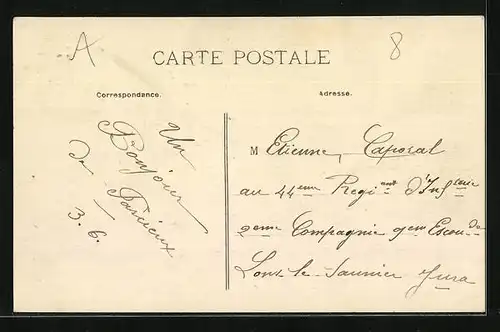 A
8
CARTE POSTALE
Correspondance.
Adresse.
Un
Bonjour
de Parcieux
3. 6.
M Etienne, Caporal
au 44eme Regiment d'Infterie
2eme Compagnie 9em Escouade
Lons-le-Saunier Jura